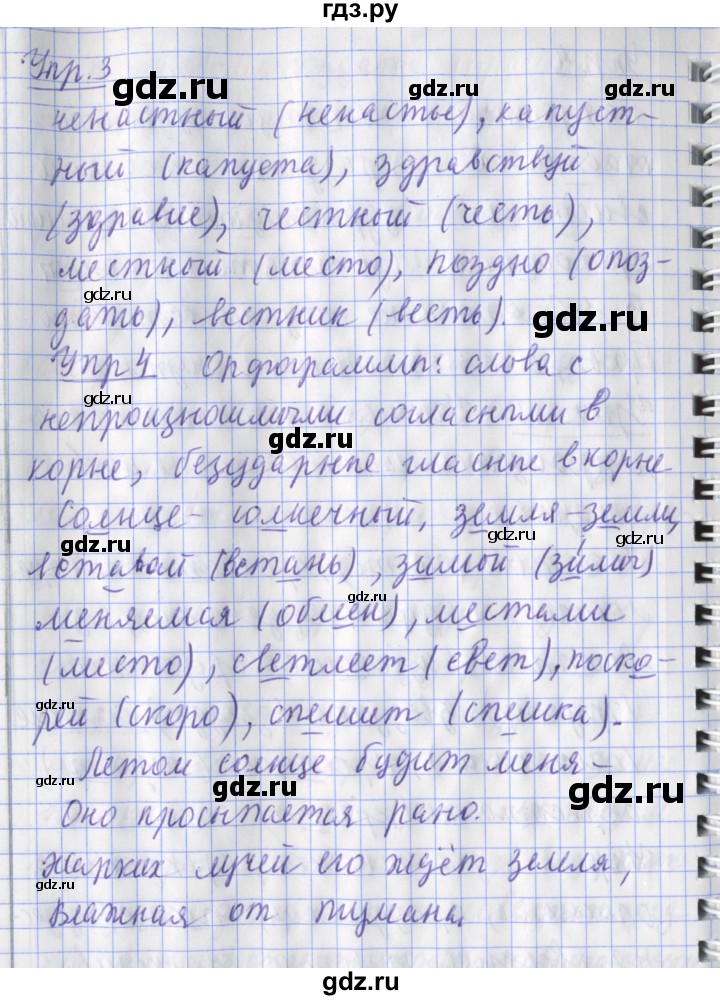 гдз.ру
Упр. 3
gdz.ru
ненастный (ненастье), капуст-
gdz.ru
ный (капуста), здравствуй
(здравие), честный (честь),
местный (место), поздно (опоз-
gdz.ru
дать), вестник (весть).
gdz.ru
Упр 4 Орфограммы: слова с
gdz.ru
непроизносимыми согласными в
gdz.ru
корне, безударные гласные в корне
Солнце - солнечный, земля - земли,
gdz.ru gdz.ru gdz.ru
вставом (встань), зимой (зимы)
меняемся (обмен), местами
gdz.ru
(место), светлеет (свет), поско-
gdz.ru
рей (скоро), спешит (спешка).
gdz.ru
Летом солнце будит меня -
gdz.ru gdz.ru
Оно просыпается рано.
gdz.ru
Жарких лучей его ждёт земля,
gdz.ru
Влажная от тумана.
gdz.ru
gdz.ru